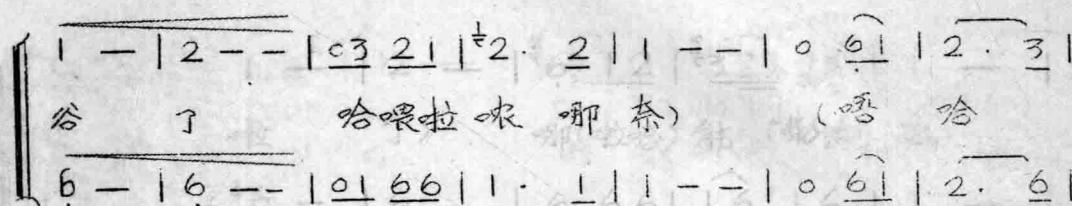 1 — | 2 — — | 03 21 | 2· 2 | 1 — — | 0 61 | 2· 3 |
谷 了 哈喂拉哝 哪 奈） （唔 哈
6 — | 6 — — | 01 66 | 1· 1 | 1 — — | 0 61 | 2· 6 |